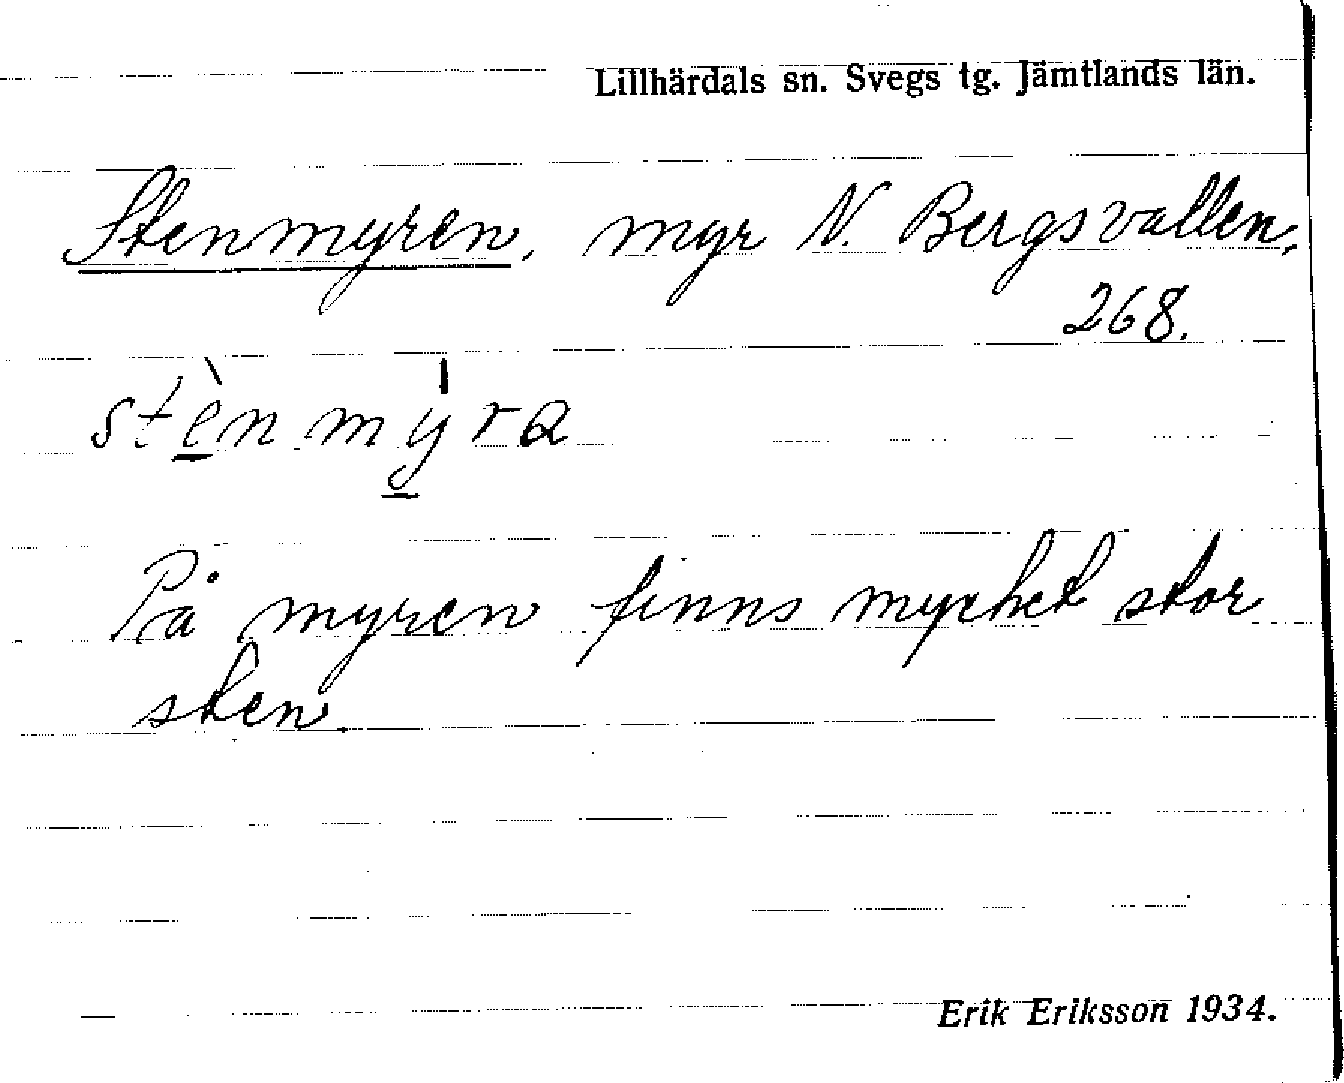 Lillhärdals sn. Svegs tg. Jämtlands län.
Stenmyren, myr N. Bergsvallen,
268.
stènmýra
På myren finns mycket stor
sten.
Erik Eriksson 1934.